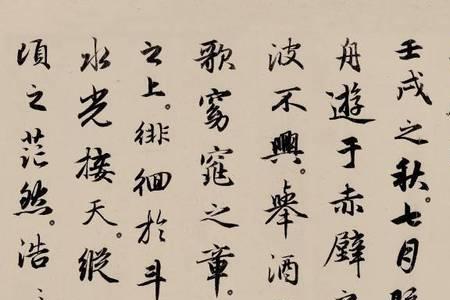 壬戌之秋。七月
舟遊于赤壁
波不興。舉酒
歌窈窕之章。
之上。徘徊於斗
水光接天。縱
頃之茫然。浩